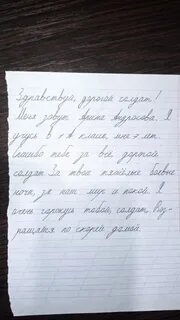 Здравствуй, дорогой солдат!
Меня зовут Арина Андросова. Я
учусь в 1 А классе, мне 7 лет.
Спасибо тебе за всё дорогой
солдат. За твои тяжёлые боевые
ночи, за наш мир и покой. Я
очень горжусь тобой, солдат. Воз-
ращайся по скорей домой.